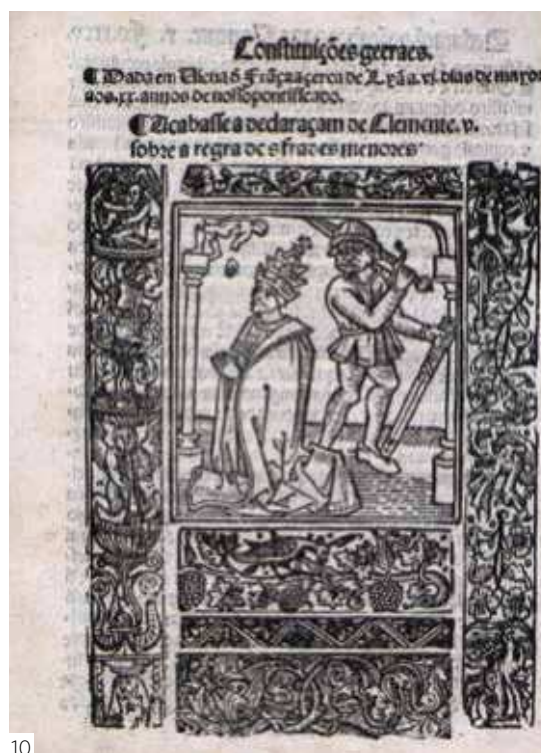 Constituições geeraes.
¶ Dada em Viena d̃ Frãça acerca de Lyã a. vi. dias de mayo
aos. xx. annos de nosso pontificado.
¶ Acabasse a declaraçam de Clemente. v.
sobre a regra des frades menores
10